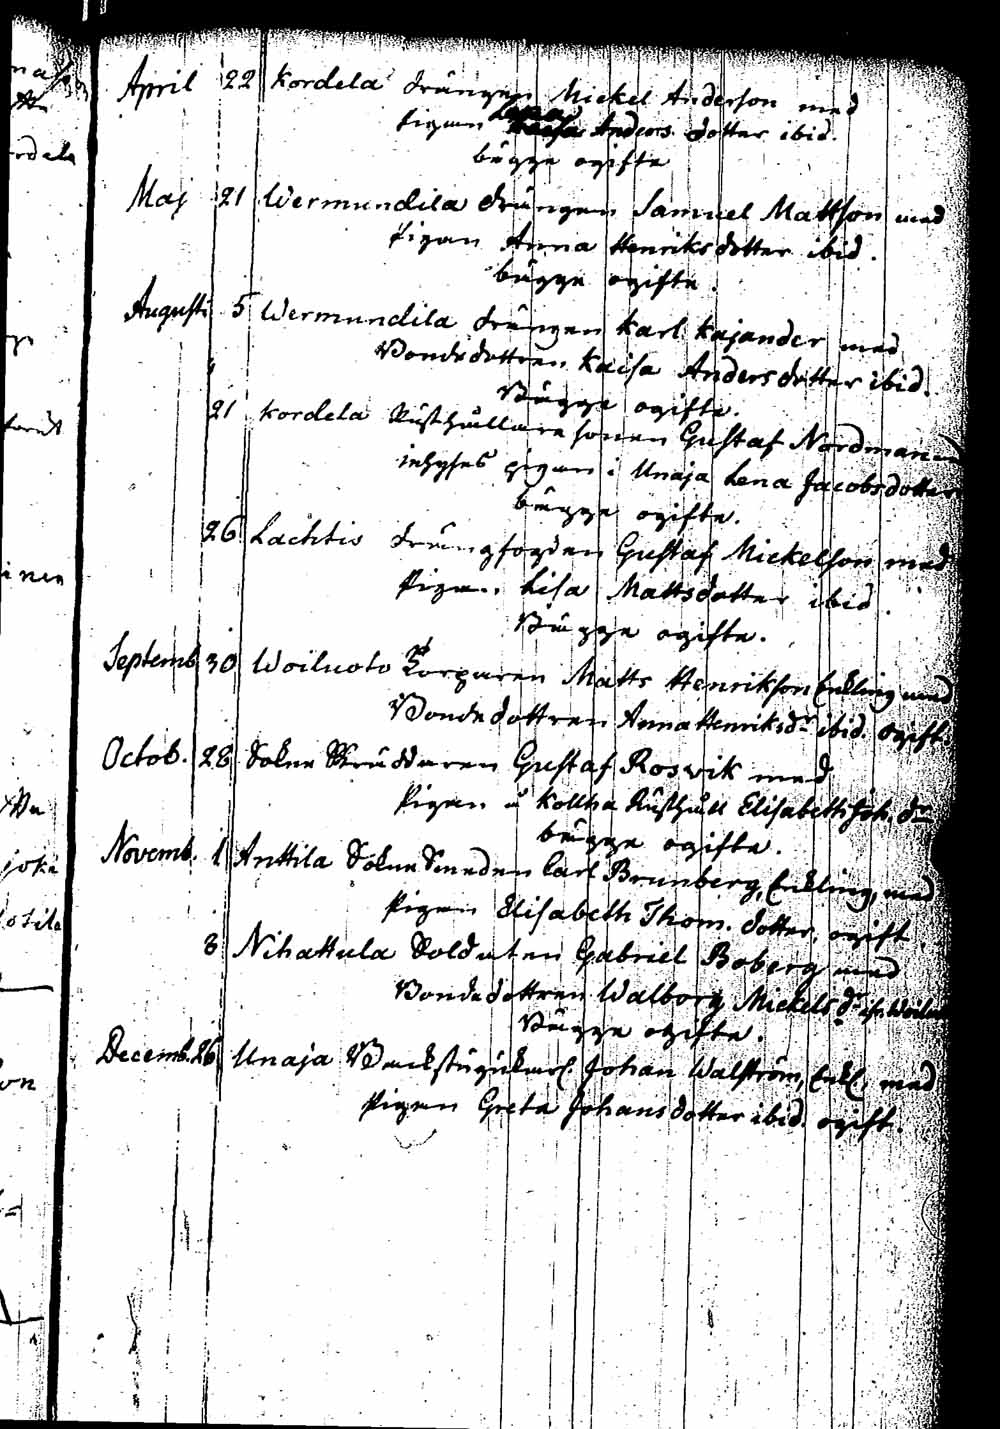 April 22 Kordela Drängen Mickel Anderson med
Pigan Lena Anders dotter ibid.
bägge ogifte
Maj 21 Wermundila Drängen Samuel Mattson med
Pigan Anna Henriksdotter ibid.
bägge ogifte.
Augusti 5 Wermundila Drängen Karl Kajander med
Bondedottren Kaisa Andersdotter ibid.
Bägge ogifte.
21 Kordela Rusthållare sonen Gustaf Nordman med
inhyses pigan i Unaja Lena Jacobsdotter
bägge ogifte.
26 Lachtis Drängfogden Gustaf Mickelson med
Pigan Lisa Mattsdotter ibid.
Bägge ogifte.
Septemb. 30 Woiluoto Torparen Matts Henrikson Enkling med
Bondedottren Anna Henriksdr ibid. ogift.
Octob. 28 Sokne Skräddaren Gustaf Roswik med
Pigan å Kollha Rusthåll Elisabeth Joh. dr
bägge ogifte.
Novemb. 1 Anttila Sokne Smeden Carl Brunberg, Enkling, med
Pigan Elisabeth Thom. dotter, ogift.
8 Nihattula Soldaten Gabriel Boberg med
Bondedottren Walborg Mickels dr
Bägge ogifte.
Decemb. 26 Unaja Johan Walström, Enkl. med
Pigan Greta Johansdotter ibid. ogift.